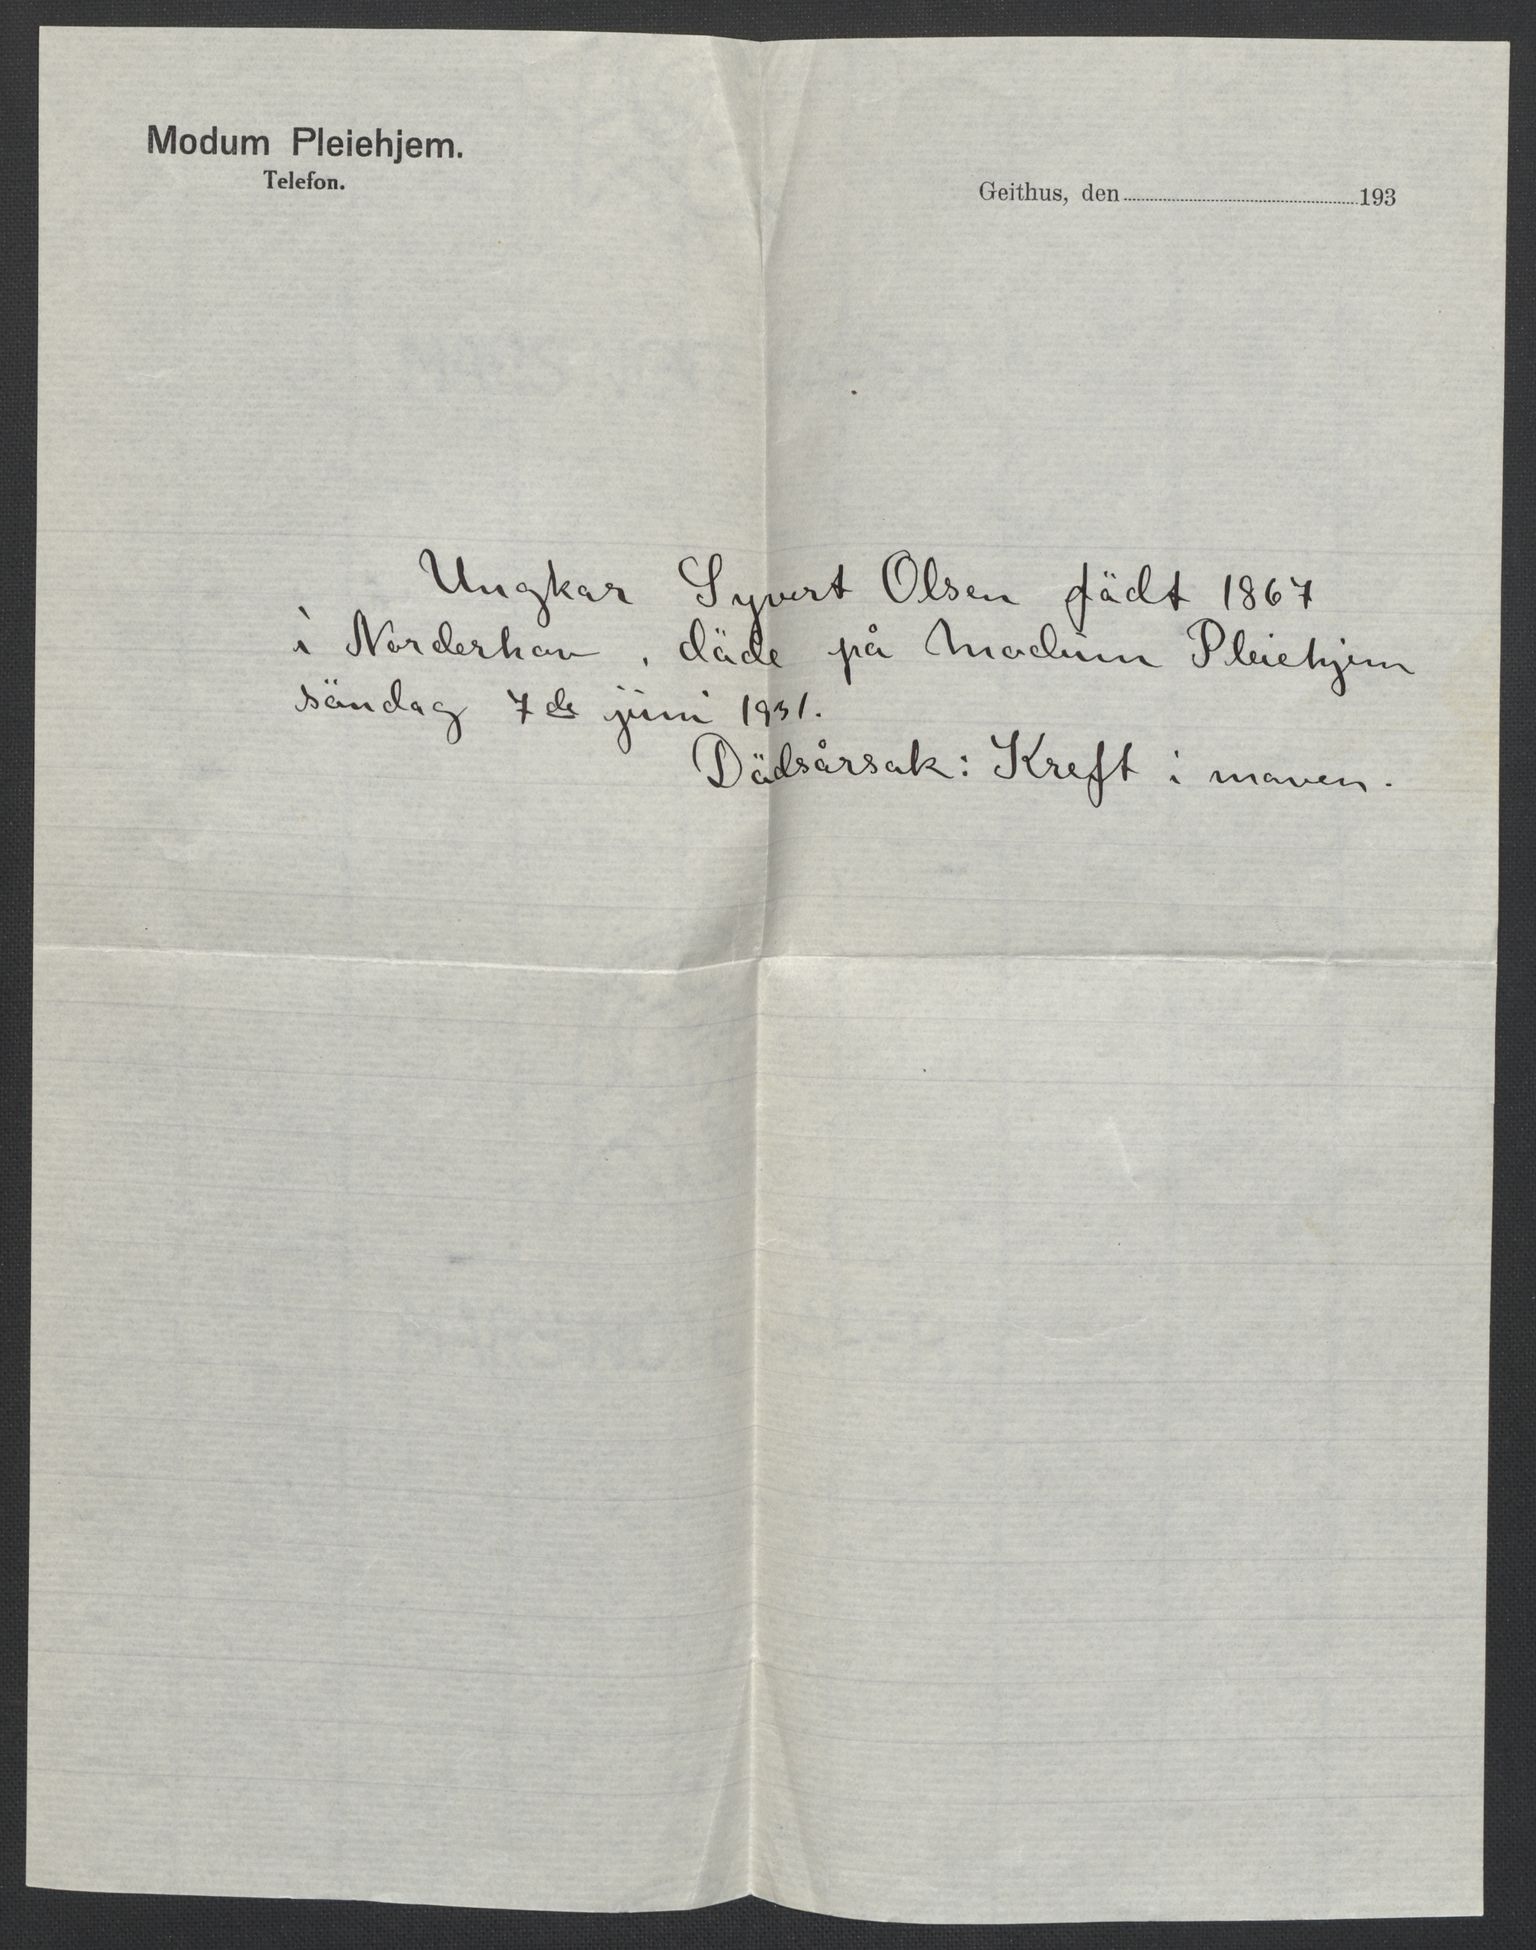 Modum Pleiehjem.
Telefon.
Geithus, den 193
Ungkar Syvert Olsen född 1867
i Norderhov, döde på Modum Pleiehjem
söndag 7de juni 1931.
Dödsårsak: Kreft i maven.